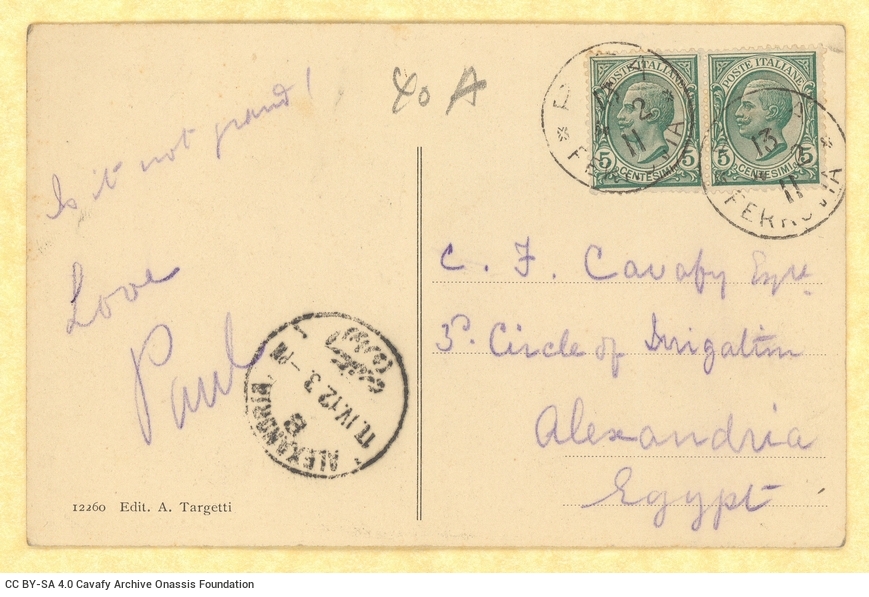 Is it not grand!
Love
Paul
40 A
POSTE ITALIANE
5 CENTESIMI 5
POSTE ITALIANE
5 CENTESIMI 5
2
11
13
2
11
FERROVIA
C. F. Cavafy Esqre
3rd. Circle of Irrigation
Alexandria
Egypt
ALEXANDRIA
B
11.IV.12 3 - PM
12260 Edit. A. Targetti
CC BY-SA 4.0 Cavafy Archive Onassis Foundation